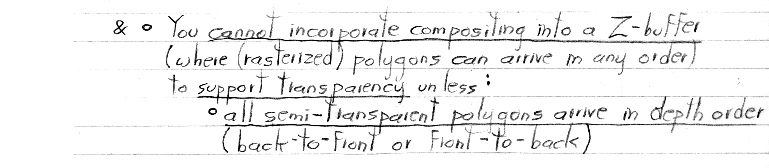 & o You cannot incorporate compositing into a Z-buffer
(where (rasterized) polygons can arrive in any order)
to support transparency unless:
o all semi-transparent polygons arrive in depth order
(back-to-front or front-to-back)